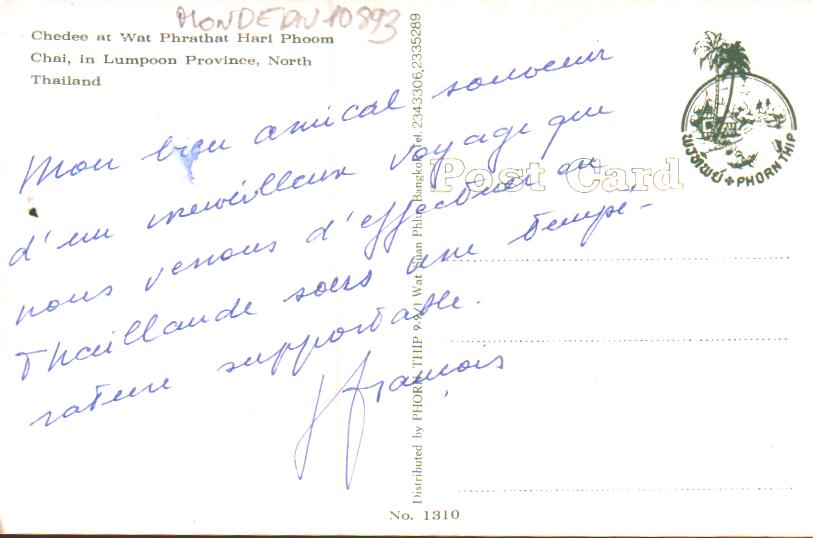 MONDEDN 10893
Chedee at Wat Phrathat Hari Phoom
Chai, in Lumpoon Province, North
Thailand
Post Card
พรทิพย์ PHORN THIP
Mon bien amical souvenir
d'un merveilleux voyage que
nous venons d'effectuer en
Thaillande sous une tempé-
rature supportable.
François
Distributed by PHORN THIP 9-9/1 Wat Suan Phlu, Bangkok Tel. 2343306,2335289
No. 1310